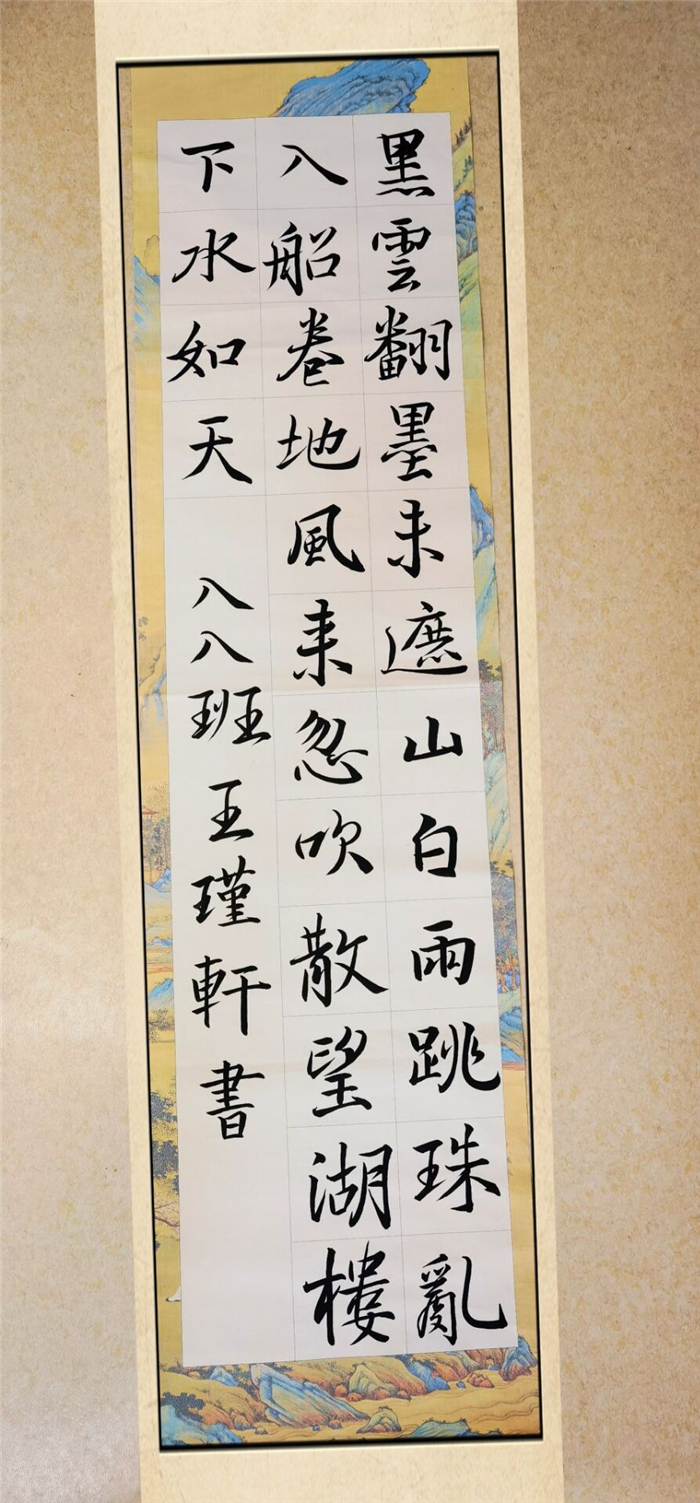 黑雲翻墨未遮山白雨跳珠亂
入船卷地風来忽吹散望湖樓
下水如天
八八班王瑾軒書